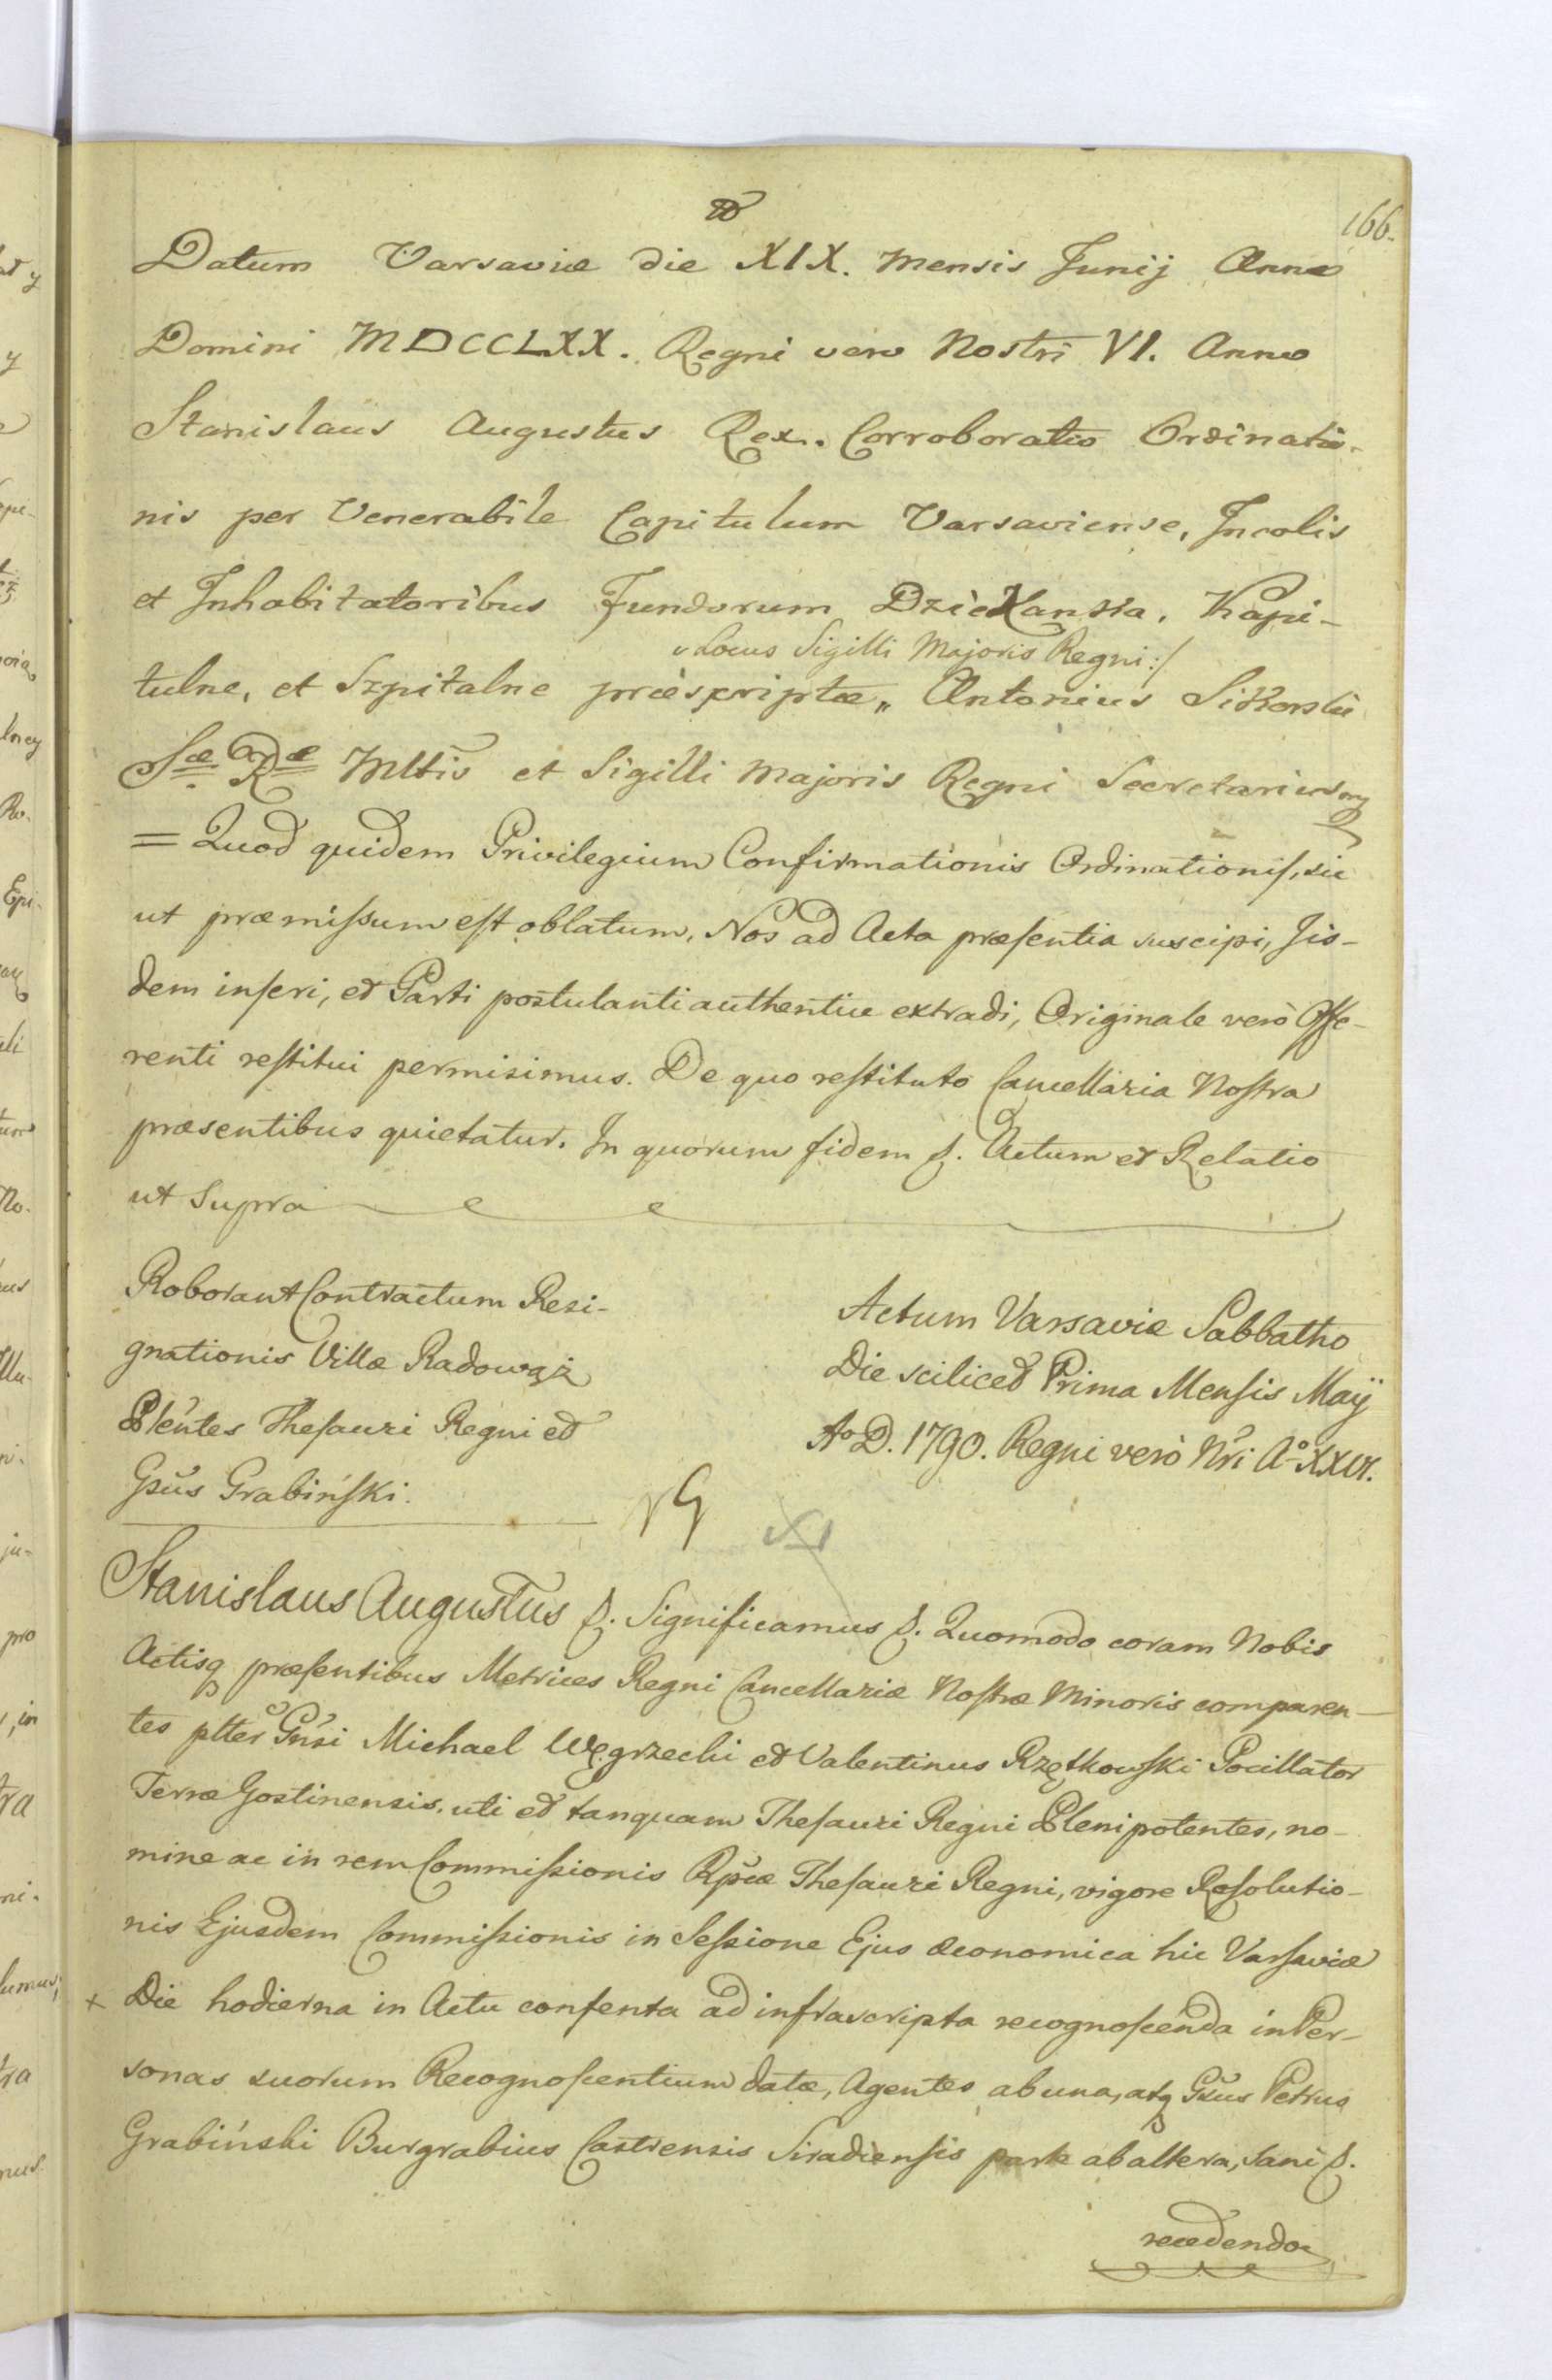 166.
Datum Varsaviæ die XIX. Mensis Junij Anno
Domini MDCCLXX. Regni vero Nostri VI. Anno
Stanislaus Augustus Rex. Corroboratio Ordinatio-
nis per Venerabile Capitulum Varsaviense, Incolis
et Inhabitatoribus Fundorum Dziekanka, Kapi-
Locus Sigilli Majoris Regni :/
tulne, et Szpitalne præscriptæ„ Antonius Sikorski
Sæ Ræ Mttis et Sigilli Majoris Regni Secretarius
= Quod quidem Privilegium Confirmationis Ordinationis, sic
ut præmissum est oblatum, Nos ad Acta præsentia suscipi, Iis-
dem inseri, et Parti postulanti authentice extradi, Originale verò Offe-
renti restitui permisimus. De quo restituto Cancellaria Nostra
præsentibus quietatur. In quorum fidem &. Actum et Relatio
ut Supra
Roborant Contractum Resi-
gnationis Villæ Radowąż
Plentes Thesauri Regni et
Gsus Grabiński.
Actum Varsaviæ Sabbatho
Die scilicet Prima Mensis Maij
Ao D. 1790. Regni verò Nri Ao XXVI.
Stanislaus Augustus &. Significamus &. Quomodo coram Nobis
Actisq præsentibus Metrices Regni Cancellariæ Nostræ Minoris comparen-
tes plter Gnsi Michael Węgrzecki et Valentinus Rzętkowski Pocillator
Terræ Gostinensis, uti et tanquam Thesauri Regni Plenipotentes, no-
mine ac in rem Commissionis Rpcæ Thesauri Regni, vigore Resolutio-
nis Ejusdem Commissionis in Sessione Ejus œconomica hic Varsaviæ
x Die hodierna in Actu consenta ad infrascripta recognoscenda in Per-
sonas suorum Recognoscentium datæ, Agentes ab una, atq Gsus Petrus
Grabiński Burgrabius Castrensis Siradiensis parte ab altera, sani &.
recedendo